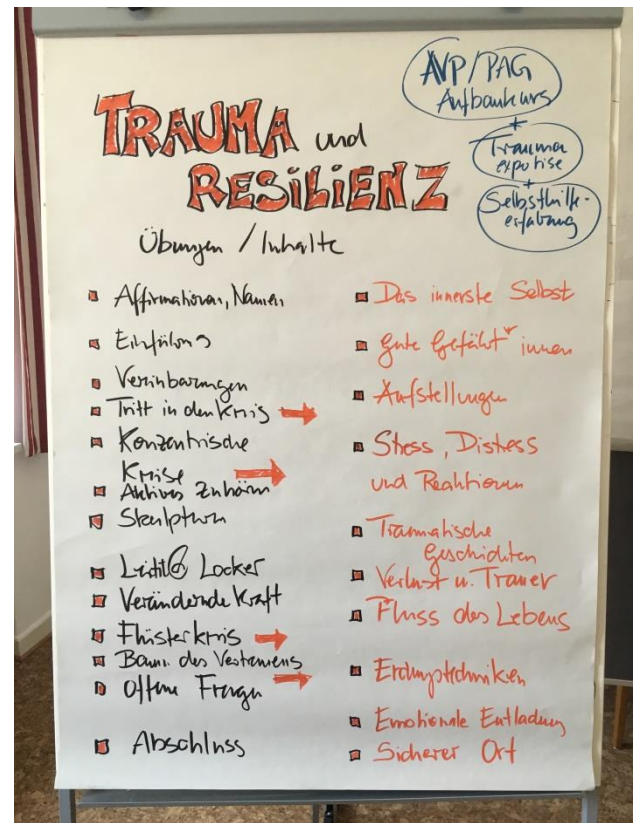 AVP/PAG
Aufbaukurs
+
Trauma
expertise
+
Selbsthilfe-
erfahrung
TRAUMA und
RESILIENZ
Übungen / Inhalte
Affirmationen, Namen
Einführung
Vereinbarungen
Tritt in den Kreis →
Konzentrische
Kreise →
Aktives Zuhören
Skulpturen
Licht & Locker
Verändernde Kraft
Flüsterkreis →
Baum des Vertrauens
Offene Fragen →
Abschluss
Das innerste Selbst
Gute Gefährt*innen
Aufstellungen
Stress, Distress
und Reaktionen
Traumatische
Geschichten
Verlust u. Trauer
Fluss des Lebens
Erdungstechniken
Emotionale Entladung
Sicherer Ort